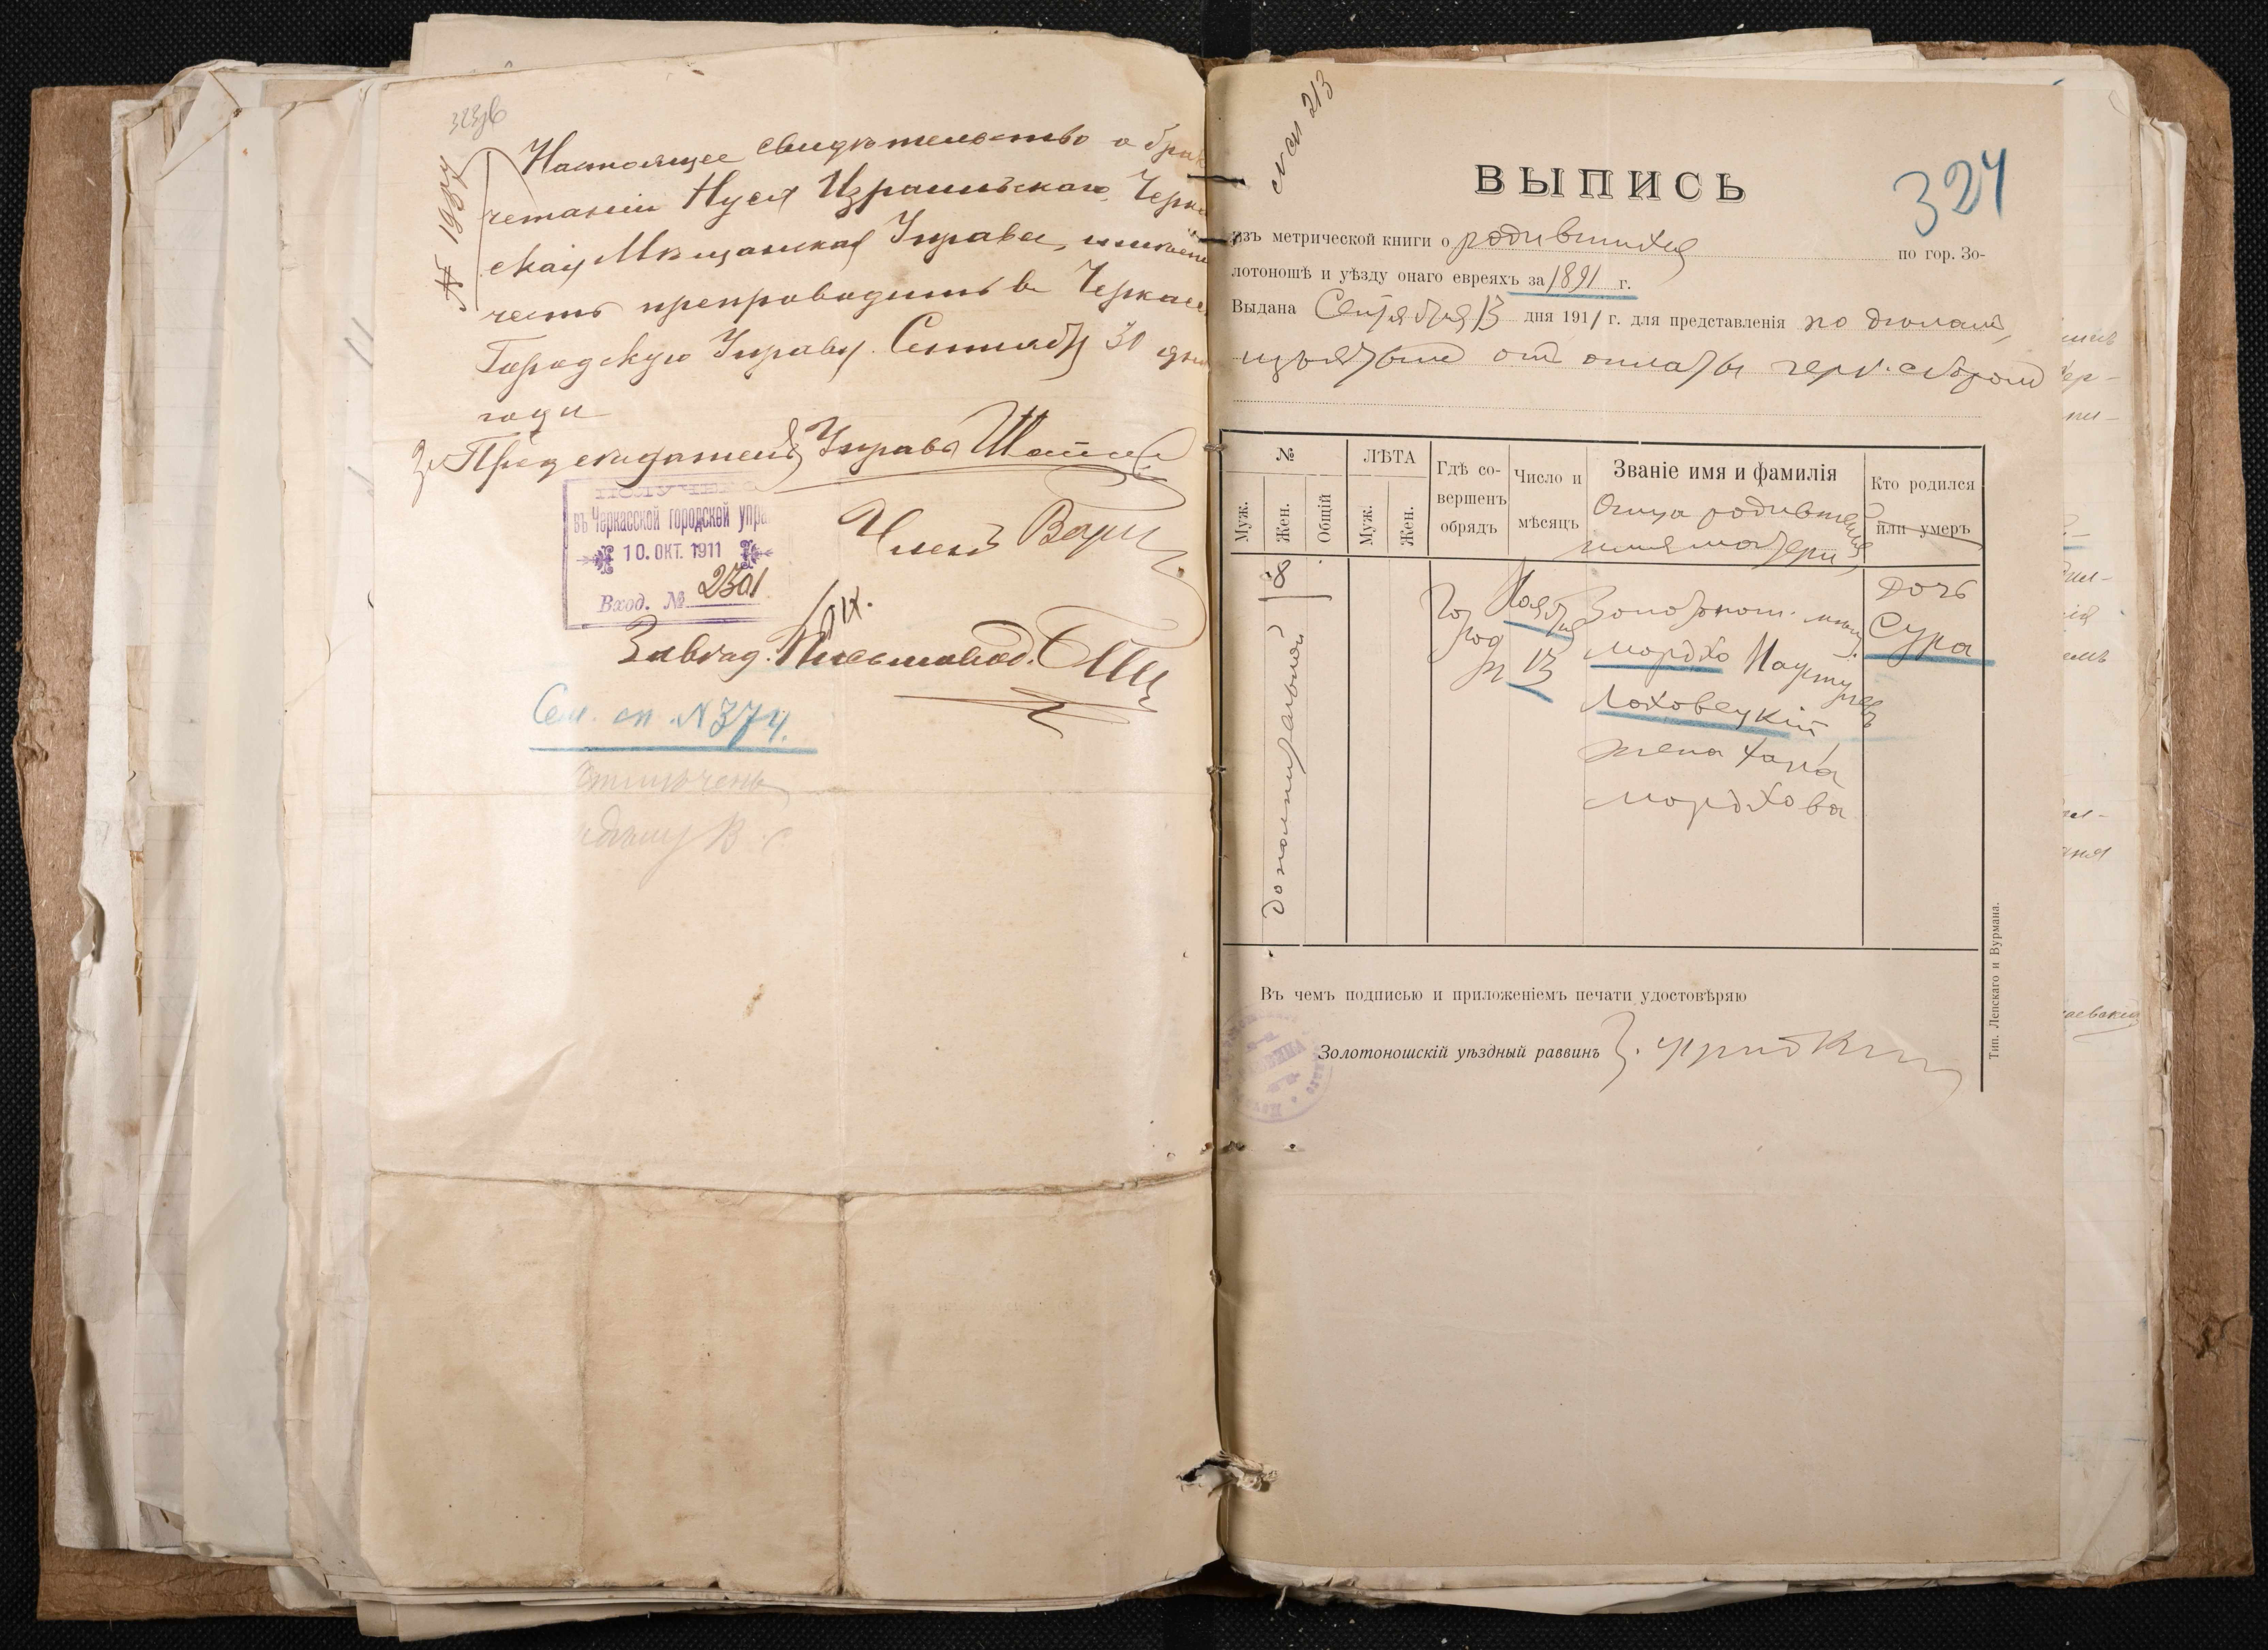 323об
№ 1987
Настоящее свидетельство о брак
четаніи Нуся Израильскаго, Черка
ская Мѣщанская Управа, имѣетъ
честь препроводить въ Черкас
Городскую Управу. Сентяб 30 дня
года
За Предсѣдателя Управы
ПОЛУЧЕНО
въ Черкасской городской упра
10. ОКТ. 1911
Вход. № 2301
Членъ
Завѣд. Письмовод.
Сем. сп. № 374.
213
324
ВЫПИСЬ
изъ метрической книги о родившихся по гор. Зо-
лотоношѣ и уѣзду онаго евреяхъ за 1891 г.
Выдана Сентября 13 дня 1911 г. для представленія по
отъ оплаты герб. сборомъ
№
ЛѢТА
Муж.
Жен.
Общій
Муж.
Жен.
Гдѣ со-
вершенъ
обрядъ
Число и
мѣсяцъ
Званіе имя и фамилія
Отца родившейся
имя матери
Кто родился
или умеръ
18
дополнительной
Го
род
Ноября
13
Золотонош. мѣщ.
Мордхо
Лоховецкій
жена Хана
Мордхова
Дочь
Сура
Въ чемъ подписью и приложеніемъ печати удостовѣряю
Золотоношскій уѣздный раввинъ
Тип. Лепскаго и Вурмана.